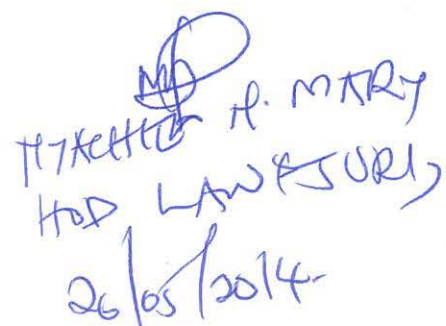 M. MARY
HOD LAW & JURI,
26/05/2014